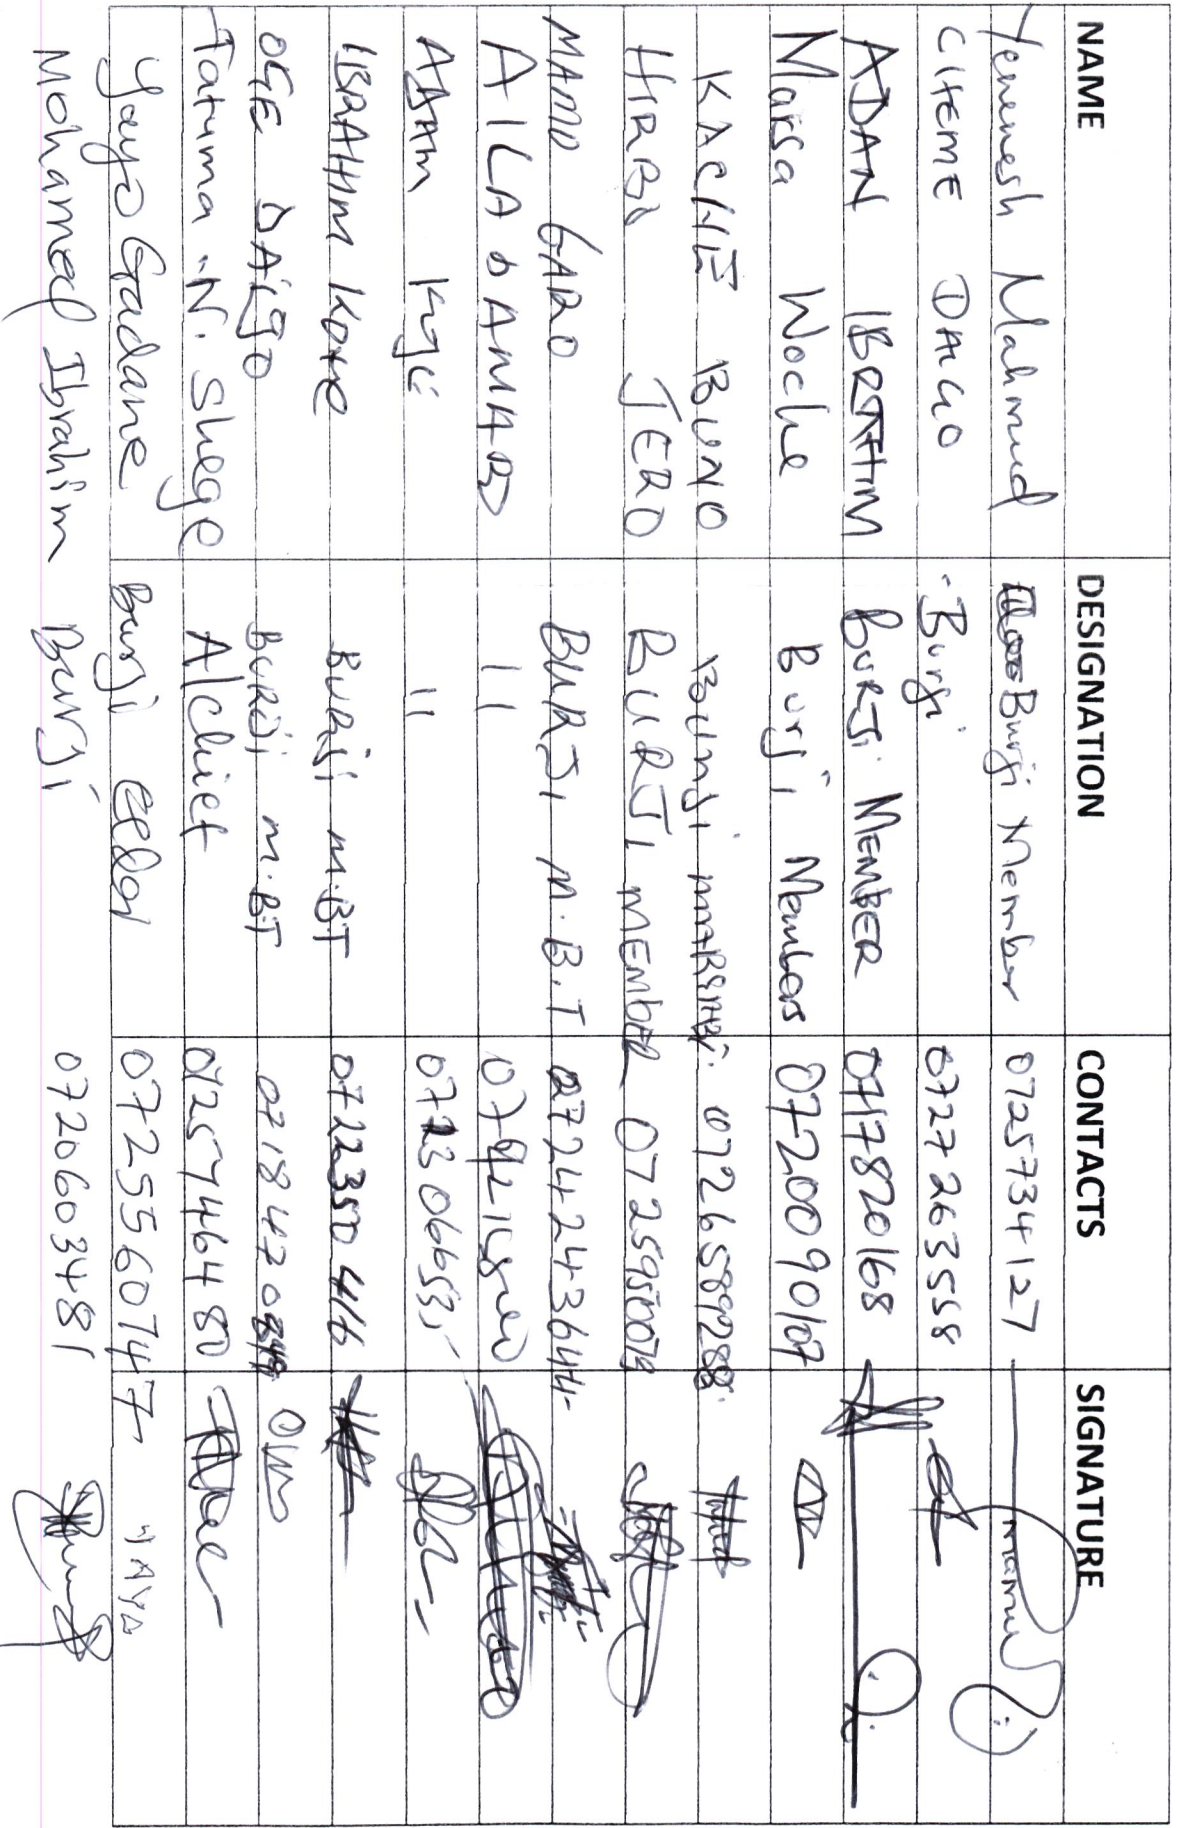 NAME DESIGNATION CONTACTS SIGNATURE
Yenenesh Mahmud Burji Member 0725734127
CHEME DAGO Burji 0727263558
ADAN IBRAHIM BURJI MEMBER 0717820168
Marsa Woche Burji Members 0720090107
KACHE BUNO 0726589288
HIRBO JERO BURJI MEMBER
MAMO GARO BURJI M.B.T 0724243644
AILA DAMAB 11
ADAM 11
IBRAHIM Kotte BURJI M.BT 0722350416
OGE DAIGO BURJI M.BT
Tatuma N. Shege A/chief 0725746480
Yayo Gadane Burji 0725560747 YAYA
Mohamed Ibrahim Burji 0720603481